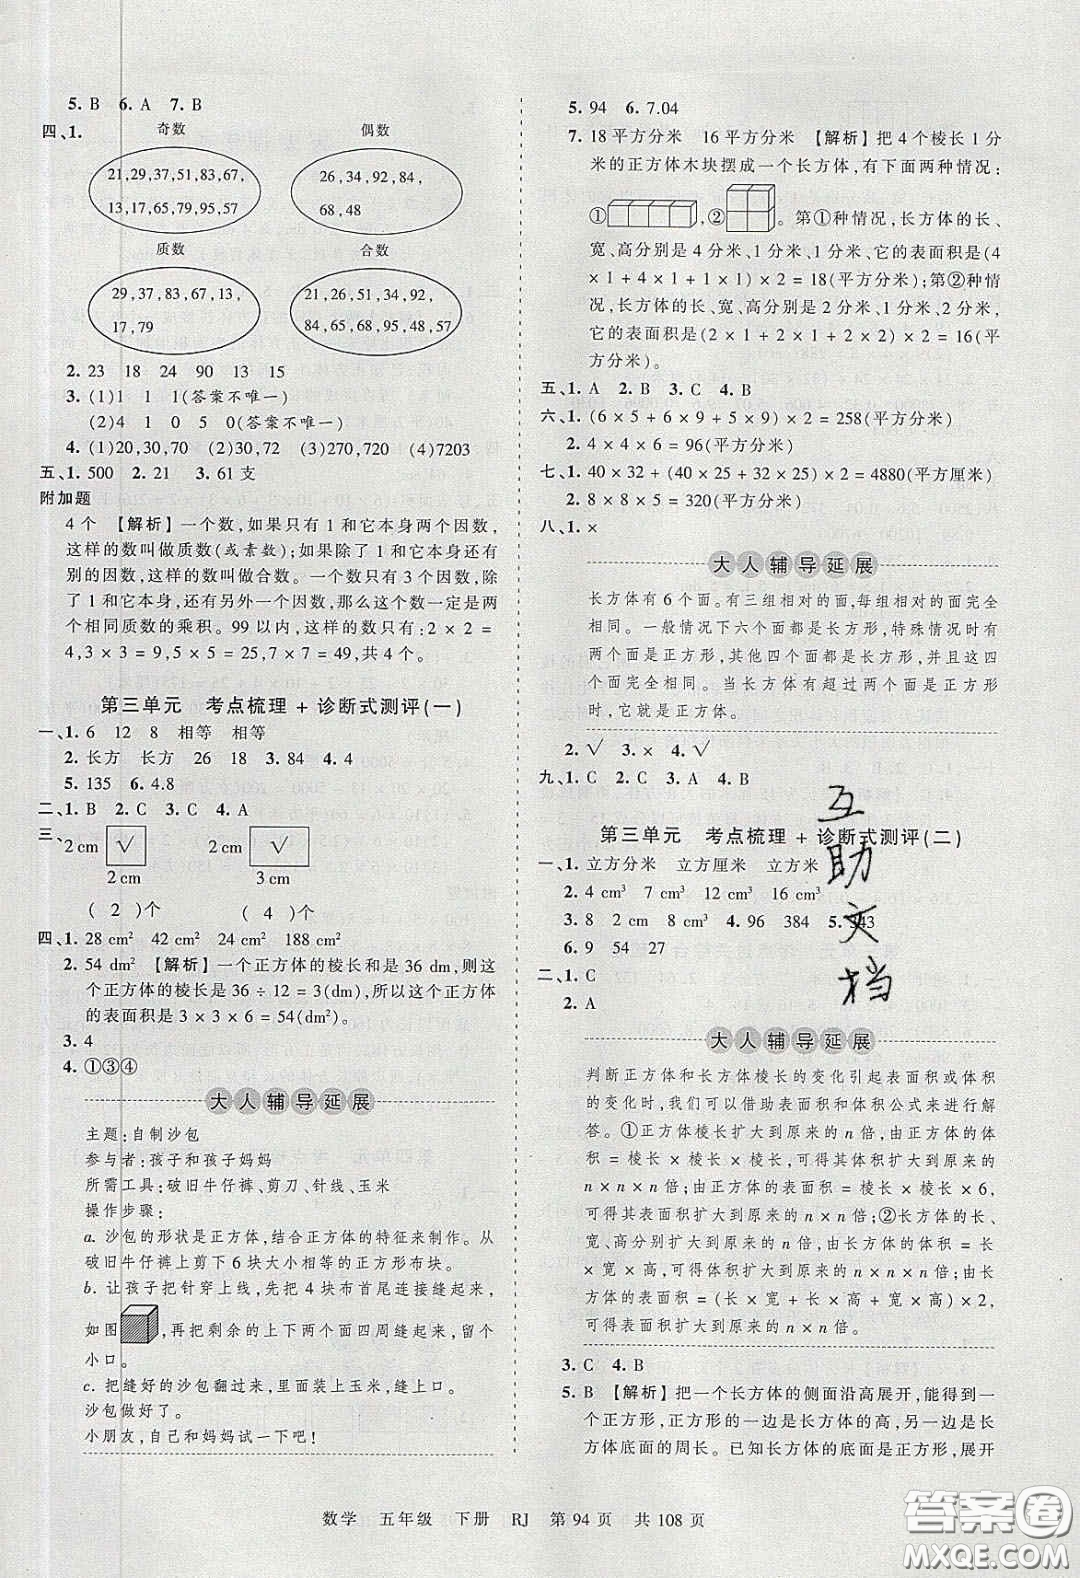 5. B  6. A  7. B
四、1.
奇数  偶数
21,29,37,51,83,67,
13,17,65,79,95,57
26,34,92,84,
68,48
质数  合数
29,37,83,67,13,
17,79
21,26,51,34,92,
84,65,68,95,48,57
2. 23  18  24  90  13  15
3. (1)1  1  1(答案不唯一)
(2)4  1  0  5  0(答案不唯一)
4. (1)20,30,70  (2)30,72  (3)70  (4)7203
五、1. 500  2. 21  3. 61 支
附加题
4 个 【解析】一个数,如果只有 1 和它本身两个因数,
这样的数叫做质数(或素数);如果除了 1 和它本身还有
别的因数,这样的数叫做合数。一个数只有 3 个因数,除
了 1 和它本身,还有另外一个因数,那么这个数一定是两
个相同质数的乘积。99 以内,这样的数有:2 × 2 =
4,3 × 3 = 9,5 × 5 = 25,7 × 7 = 49,共 4 个。
第三单元 考点梳理 + 诊断式测评(一)
一、1. 6  12  8  相等  相等
2. 长方  长方  26  18  3. 84  4. 4
5. 135  6. 4.8
二、1. B  2. C  3. C  4. A
三、
2 cm √  2 cm √
2 cm  3 cm
( 2 )个  ( 4 )个
四、1. 28 cm²  42 cm²  24 cm²  188 cm²
2. 54 dm² 【解析】一个正方体的棱长和是 36 dm,则这
个正方体的棱长是 36 ÷ 12 = 3(dm),所以这个正方体
的表面积是 3 × 3 × 6 = 54(dm²)。
3. 4
4. ①③④
大人辅导延展
主题:自制沙包
参与者:孩子和孩子妈妈
所需工具:破旧牛仔裤、剪刀、针线、玉米
操作步骤:
a. 沙包的形状是正方体,结合正方体的特征来制作。从
破旧牛仔裤上剪下 6 块大小相等的正方形布块。
b. 让孩子把针穿上线,先把 4 块布首尾连接缝起来,
如图,再把剩余的上下两个面四周缝起来,留个
小口。
c. 把缝好的沙包翻过来,里面装上玉米,缝上小口。
沙包做好了。
小朋友,自己和妈妈试一下吧!
5. 94  6. 7.04
7. 18 平方分米  16 平方分米 【解析】把 4 个棱长 1 分
米的正方体木块摆成一个长方体,有下面两种情况:
①,②。第①种情况,长方体的长、
宽、高分别是 4 分米、1 分米、1 分米,它的表面积是(4
× 1 + 4 × 1 + 1 × 1) × 2 = 18(平方分米);第②种情
况,长方体的长、宽、高分别是 2 分米、1 分米、2 分米,
它的表面积是(2 × 1 + 2 × 1 + 2 × 2) × 2 = 16(平
方分米)。
五、1. A  2. B  3. C  4. B
六、1. (6 × 5 + 6 × 9 + 5 × 9) × 2 = 258(平方分米)
2. 4 × 4 × 6 = 96(平方分米)
七、1. 40 × 32 + (40 × 25 + 32 × 25) × 2 = 4880(平方厘米)
2. 8 × 8 × 5 = 320(平方分米)
八、1. ×
大人辅导延展
长方体有 6 个面。有三组相对的面,每组相对的面完全
相同。一般情况下六个面都是长方形,特殊情况时有
两个面是正方形,其他四个面都是长方形,并且这四
个面完全相同。当长方体有超过两个面是正方形
时,它就是正方体。
2. √  3. ×  4. √
九、1. C  2. C  3. A  4. B
第三单元 考点梳理 + 诊断式测评(二)
一、1. 立方分米  立方厘米  立方米
2. 4 cm³  7 cm³  12 cm³  16 cm³
3. 8  2 cm  8 cm³  4. 96  384  5. 343
6. 9  54  27
二、1. C
2. A
互助文档
大人辅导延展
判断正方体和长方体棱长的变化引起表面积或体积
的变化时,我们可以借助表面积和体积公式来进行解
答。①正方体棱长扩大到原来的 n 倍,由正方体的体
积 = 棱长 × 棱长 × 棱长,可得其体积扩大到原来的
n × n × n 倍;由正方体的表面积 = 棱长 × 棱长 × 6,
可得其表面积扩大到原来的 n × n 倍;②长方体的长、
宽、高分别扩大到原来的 n 倍,由长方体的体积 = 长
× 宽 × 高,可得其体积扩大到原来的 n × n × n 倍;由长
方体的表面积 = (长 × 宽 + 长 × 高 + 宽 × 高) × 2,
可得其表面积扩大到原来的 n × n 倍。
3. C  4. B
5. B 【解析】把一个长方体的侧面沿高展开,能得到一
个正方形,正方形的一边是长方体的高,另一边是长
方体底面的周长。已知长方体的底面是正方形,展开
数学 五年级 下册 RJ 第 94 页 共 108 页
答案圈
MXQE.COM